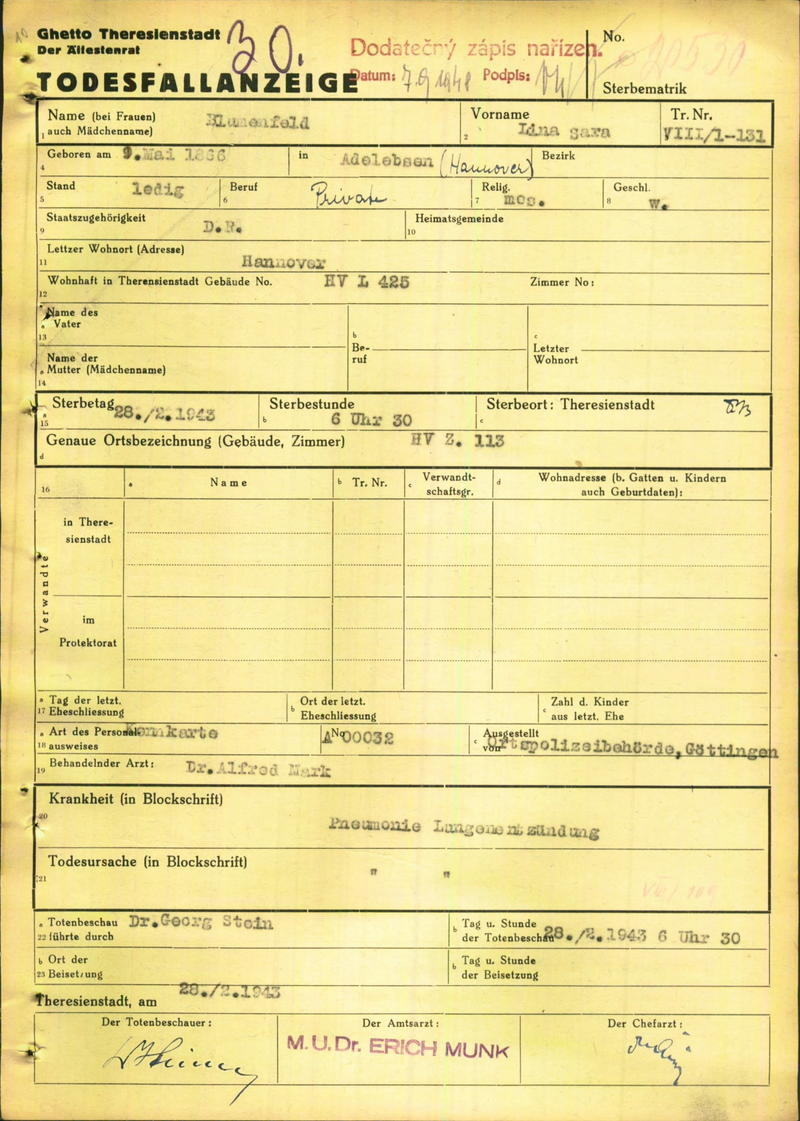 Ghetto Theresienstadt
Der Ältestenrat
30.
Dodatečný zápis nařízen.
No.
TODESFALLANZEIGE
Datum: 7.9.1948 Podpis:
Sterbematrik
Name (bei Frauen) Blumenfeld Vorname Tr. Nr.
1 auch Mädchenname) 2 Idna Sara VIII/1-131
Geboren am 9. Mai 1866 in Adelebsen (Hannover) Bezirk
4
Stand ledig Beruf Private Relig. mos. Geschl. w.
5 6 7 8
Staatszugehörigkeit D.R. Heimatsgemeinde
9 10
Lettzer Wohnort (Adresse)
11 Hannover
Wohnhaft in Therensienstadt Gebäude No. HV L 425 Zimmer No:
12
a Name des Vater
13
b Beruf
c Letzter Wohnort
Name der
a Mutter (Mädchenname)
14
Sterbetag 28./2.1943 Sterbestunde Sterbeort: Theresienstadt
a 15 b 6 Uhr 30 c
Genaue Ortsbezeichnung (Gebäude, Zimmer) HV Z. 113
d
16 a Name b Tr. Nr. c Verwandt-schaftsgr. d Wohnadresse (b. Gatten u. Kindern
auch Geburtdaten):
Verwandte
in There-
sienstadt
im
Protektorat
a Tag der letzt. b Ort der letzt. c Zahl d. Kinder
17 Eheschliessung Eheschliessung aus letzt. Ehe
a Art des Personal- Kennkarte A No 00032 c Ausgestellt
18 ausweises von Ortspolizeibehörde, Göttingen
Behandelnder Arzt: Dr. Alfred Mark
19
Krankheit (in Blockschrift)
20
Pneumonie Lungenentzündung
Todesursache (in Blockschrift)
21 " "
VIII/109
a Totenbeschau Dr. Georg Stein b Tag u. Stunde
22 führte durch der Totenbeschau 28./2.1943 6 Uhr 30
b Ort der b Tag u. Stunde
23 Beisetzung der Beisetzung
Theresienstadt, am 28./2.1943
Der Totenbeschauer: Der Amtsarzt: Der Chefarzt:
M.U.Dr. ERICH MUNK